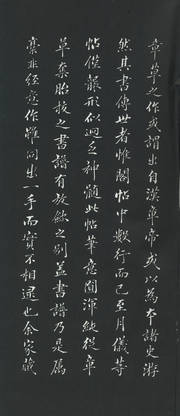 章草之作或謂出自漢章帝或以為本諸史游
然其書傳世者惟閣帖中數行而已至月儀等
帖僅能形似迥乏神髓此帖筆意闊渾純從章
草奏胎技之書譜有放斂之別蓋書譜乃是屬
稾非經意作雖同出一手而實不相遝也余家藏